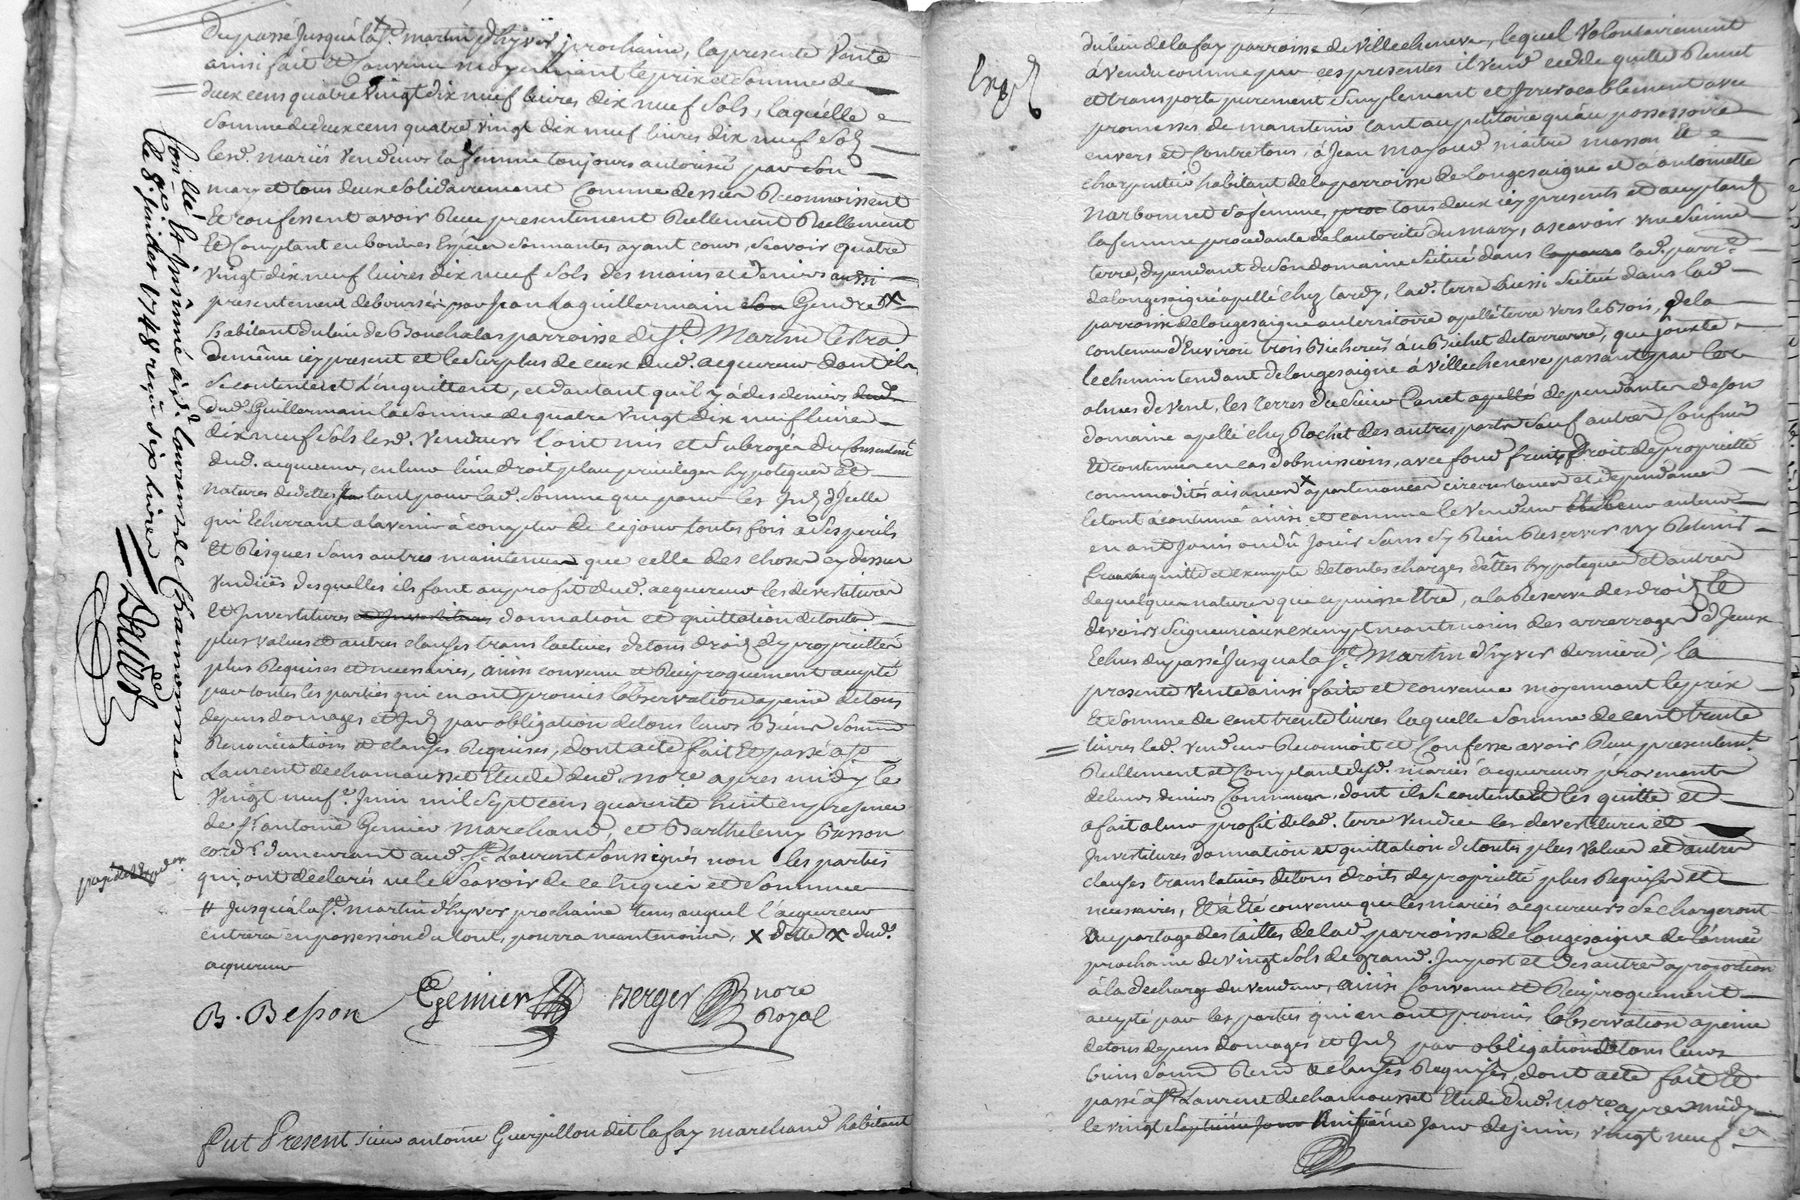 du passé jusqu'à la St. martin d'hyver prochaine, la presente vente
ainsi fait et convenu moyennant le prix et somme de
deux cens quatre vingt dix neuf livres dix neuf sols, laquelle
somme de deux cens quatre vingt dix neuf livres dix neuf sols
lesd. mariés vendeurs la femme toujours autorisée par son
mary et tous deux solidairement comme dessus Reconnoissent
et confessent avoir Reçu presentement Reellement Reellement
et comptant en bonnes Especes sonnantes ayant cours, scavoir quatre
vingt dix neuf livres dix neuf sols des mains et deniers aussi
presentement deboursés par jean la guillermain son Gendre X
habitant du lieu de Bouchalas parroisse de St. Martin Lestra
de même icy present et le surplus de ceux dud. acquereur dont ils
se contentent et l'en quittent, et d'autant qu'il y a des deniers dud.
dud. Guillermain la somme de quatre vingt dix neuf livres
dix neuf sols lesd. vendeurs l'ont mis et subrogé du consentement
dud. acquereur, en leur lieu droit place privileges hypoteques et
natures de dettes tant pour lad. somme que pour les Intts d'Icelle
qui Echerront a l'avenir à compter de ce jour toutes fois à ses perils
et Risques sans autres maintenue que celle des choses cy dessus
vendües desquelles ils font au profit dud. acquereur les devestitures
et Investitures et Investitures donnation et quittation de toutes
plus values et autres clauses translatives de tous droits de proprietté
plus Requises et necessaires, ainsi convenu et Reciproquement accepté
par toutes les parties qui en ont promis l'observation a peine de tous
depens domages et Intts par obligation de tous leurs Biens soumis
Renonciations et clauses Requises, dont acte fait et passé a St
Laurent de chamousset Etude dud. nore apres midy le
vingt neufe Juin mil sept cens quarante huit en presence
de Sr antoine Genier marchand, et Barthelemy Besson
cordr demeurant aud. St. Laurent soussignés non les parties
qui ont déclarés ne le scavoir de ce Enquis et sommés
# jusqu'à la St. martin d'hyver prochaine tems auquel l'acquereur
entrera en possession du tout, pourra neantmoins, X dette X dud.
acquereur
B. Besson Genier Berger nore
Royal
Controllé et Insinué à St. Laurent de Chamousset
le 8e juillet 1748 reçu six livres
Fut Present sieur antoine Guerpillon dit la fay marchand habitant
du lieu de la fay parroisse de Villecheneve, lequel volontairement
à vendu comme par ces presentes il vend cedde quitte Remet
et transporte purement simplement et Irrevocablement avec
promesses de maintenir tant au petitoire qu'au possessoire
envers et contre tous, à Jean Mazaud maitre masson et
charpentier habitant de la parroisse de Longesaigne et a antoinette
Narbonnet sa femme, pro tous deux icy presents et acceptant
la femme procedante de l'autorité du mary, a scavoir une sienne
terre, dependant de son domaine scitué dans la parro lad. parr.
de longesaigne apellé chez tardy, lad. terre aussi scituée dans lad
parroisse de longesaigne au territoire apellé terre vers le Bois, de la
contenue d'environ trois Bicherées au Bichet de tarrare, que jouxte
le chemin tendant de longesaigne à villecheneve passant par les
olmes de vent, les terres du sieur Canet apellé dependantes de son
domaine apellé chez Rochet des autres parts sauf autres confins
et contenue en cas d'obmissions, avec fond fruits droit de proprietté
commodités aisances X apartenances circonstances et dependances
le tout accoutumé ainsi et comme le vendeur et ses autheurs
en ont Jouis ou dû Jouir sans sy Rien Reserver ny Retenir
franche quitte et exempte de toutes charges dettes hypoteques et autres
de quelque nature que ce puisse Etre, a la Reserve des droits et
devoirs seigneuriaux exempt neantmoins des arrerages d'Iceux
Echus du passé Jusqu'a la St. Martin d'hyver derniere, la
presente vente ainsi faite et convenue moyennant le prix
et somme de cent trente livres laquelle somme de cent trente
livres led. vendeur Reconnoit et confesse avoir Reçu presentemt
Reellement et comptant desd. mariés acquereurs provenants
de leurs deniers communs, dont il se contente et les quitte et
a fait a leur profit de lad. terre vendue les devestitures et
Investitures donnation et quittation de toutes plus values et autres
clauses translatives de tous droits de proprietté plus Requises et
necessaires, Et à Eté convenu que les mariés acquereurs se chargeront
au partage des tailles de lad. parroisse de Longesaigne de l'année
prochaine de vingt sols de grand Impost et des autres a proportion
à la decharge du vendeur, ainsi convenu et Reciproquement
accepté par les parties qui en ont promis l'observation a peine
de tous depens domages et Intts par obligation de tous leurs
biens soumis Renon. et clauses Requises, dont acte fait et
passé a St. Laurent de chamousset Etude dud. nore apres midy
le vingt septième jour huitième jour de juin, vingt neuf